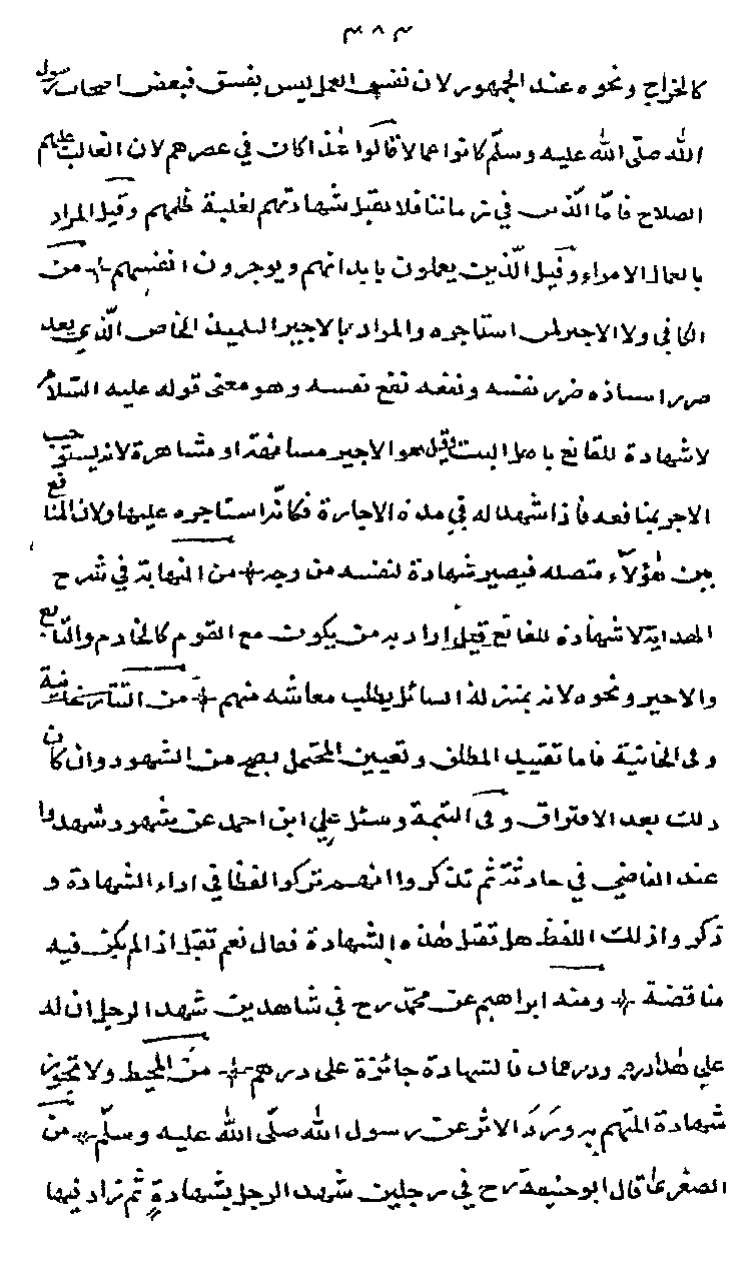 ٣٨٣
كالخراج ونحوه عند الجمهور لان نفس العمل ليس بفسق فبعض اصحاب رسول
الله صلّى الله عليه وسلّم كانوا عمالا قالوا هٰذا كان في عصرهم لان الغالب عليهم
الصلاح فامّا الّذين في زماننا فلا يقبل شهادتهم لغلبة ظلمهم وقيل المراد
بالعمال الامراء وقيل الّذين يعملون بابدانهم ويوجرون انفسهم من
الكافي ولا الاجير لمن استاجره والمراد بالاجير التلميذ الخاص الّذي يعد
ضرر استاذه ضرر نفسه ونفعه نفع نفسه وهو معنى قوله عليه السّلام
لا شهادة للقانع باهل البيت وقيل هو الاجير مسانهة او مشاهرة لانه يستوجب
الاجر بمنافعه فاذا شهد له في مدة الاجارة فكانّه استاجره عليها ولان المنافع
بين هٰؤلآء متصله فيصير شهادة لنفسه من وجه من النهاية في شرح
الهداية لا شهادة للقانع قيل اراد به من يكون مع القوم كالخادم والتّابع
والاجير ونحوه لانه بمنزلة السائل يطلب معاشه منهم من التتارخانية
وفى الخانية فاما تقييد المطلق وتعيين المحتمل يصح من الشهود وان كان
ذلك بعد الافتراق وفى اليتيمة وسئل علي ابن احمد عن شهود شهدوا
عند القاضي في حادثة ثم تذكروا انهم تركوا لفظا في اداء الشهادة و
ذكروا ذلك اللفظ هل تقبل هٰذه الشهادة فقال نعم تقبل اذا لم يكن فيه
مناقضة ومنه ابراهيم عن محمّد رح في شاهدين شهد الرجل ان له
على هٰذا درهم ودرهمان فالشهادة جائزة على درهم من المحيط ولا تجوز
شهادة المتهم به ورد الاثر عن رسول الله صلّى الله عليه وسلّم من
الصغرى قال ابو حنيفة رح في رجلين شهد الرجل بشهادة ثم زاد فيها